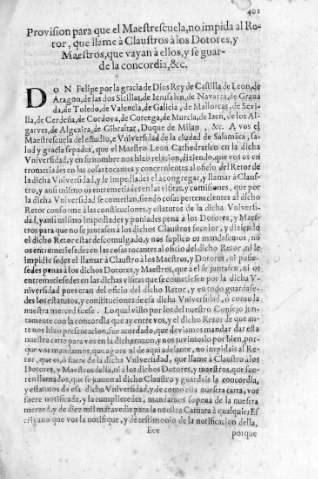 401
Provision para que el Maestrescuela, no impida al Retor, que llame à Claustros à los Dotores, y
Maestros, que vayan à ellos, y se guarde la concordia, &c.
DON Felipe por la gracia de Dios Rey de Castilla de Leon, de
Aragon, de las dos Sicilias, de Ierusalen, de Navarra, de Grana
da, de Toledo, de Valencia, de Galicia, de Mallorcas, de Sevi-
lla, de Cerdeña, de Cordova, de Corcega, de Murcia, de Iaen, de los Al
garves, de Algezira, de Gibraltar, Duque de Milan, &c. A vos el
Maestrescuela del estudio, e Vniversidad de la ciudad de Salamãca, sa-
lud y gracia sepades, que el Maestro Leon Cathedratico en la dicha
Vniversidad, y en su nombre nos hizo relacion, diziendo, que vos os en
tremetiades en las cosas tocantes y concernientes al oficio del Retor de
la dicha Vniversidad, y le impediades el acongregar, y llamar Claus-
tro, y ansi mismo os entremetiades en las visitas, y comisiones, que por
la dicha Vniversidad se cometian, siendo cosas pertenecientes al dicho
Retor conforme à las constituciones, y estatutos de la dicha Vniversi-
dad, y ansi mismo impediades y poniades pena à los Dotores, y Maes-
tros para que no se juntasen à los dichos Claustros
el dicho Retor estar descomulgado, y nos suplico os mandasemos, no
os entremetiesedes en las cosas tocantes al oficio del dicho Retor, ni le
impidiesedes el llamar à Claustro à los Maestros, y Dotores, ni pusie-
sedes penas à los dichos Dotores, y Maestros, que à el se juntasen, ni os
entremetiesedes en las dichas visitas que se cometiesen por la dicha V-
niversidad
los estatutos, y constituciones de esa dicha Vniversidad, ò como la
nuestra merced fuese. Lo qual visto por los del nuestro Consejo junta-
mente con la concordia que ay entre vos, y el dicho Retor de que an-
te nos hizo presentacion, fue acordado, que deviamos mandar dar esta
nuestra carta para vos en la dicha razon, y nos tuvimoslo por bien, por-
que vos mandamos, que agora ni de aqui adelante, no impidais al Re-
tor, que es, ò fuere de la dicha Vniversidad, que llame à Claustro à los
Dotores, y Maestros della, ni à los dichos Dotores, y maestros, que fue-
ren llamados, que se junten al dicho Claustro y guardeis la concordia,
y estatutos de esa dicha Vniversidad, y de como esta nuestra carta, vos
fuere notificada, y la cumplieredes, mandamos so pena de la nuestra
merced, y de diez mil maravedis para la nuestra Camara à qualquier Es
crivano que vos la notifique, y de testimonio de la notificacion della,
Eee
porque